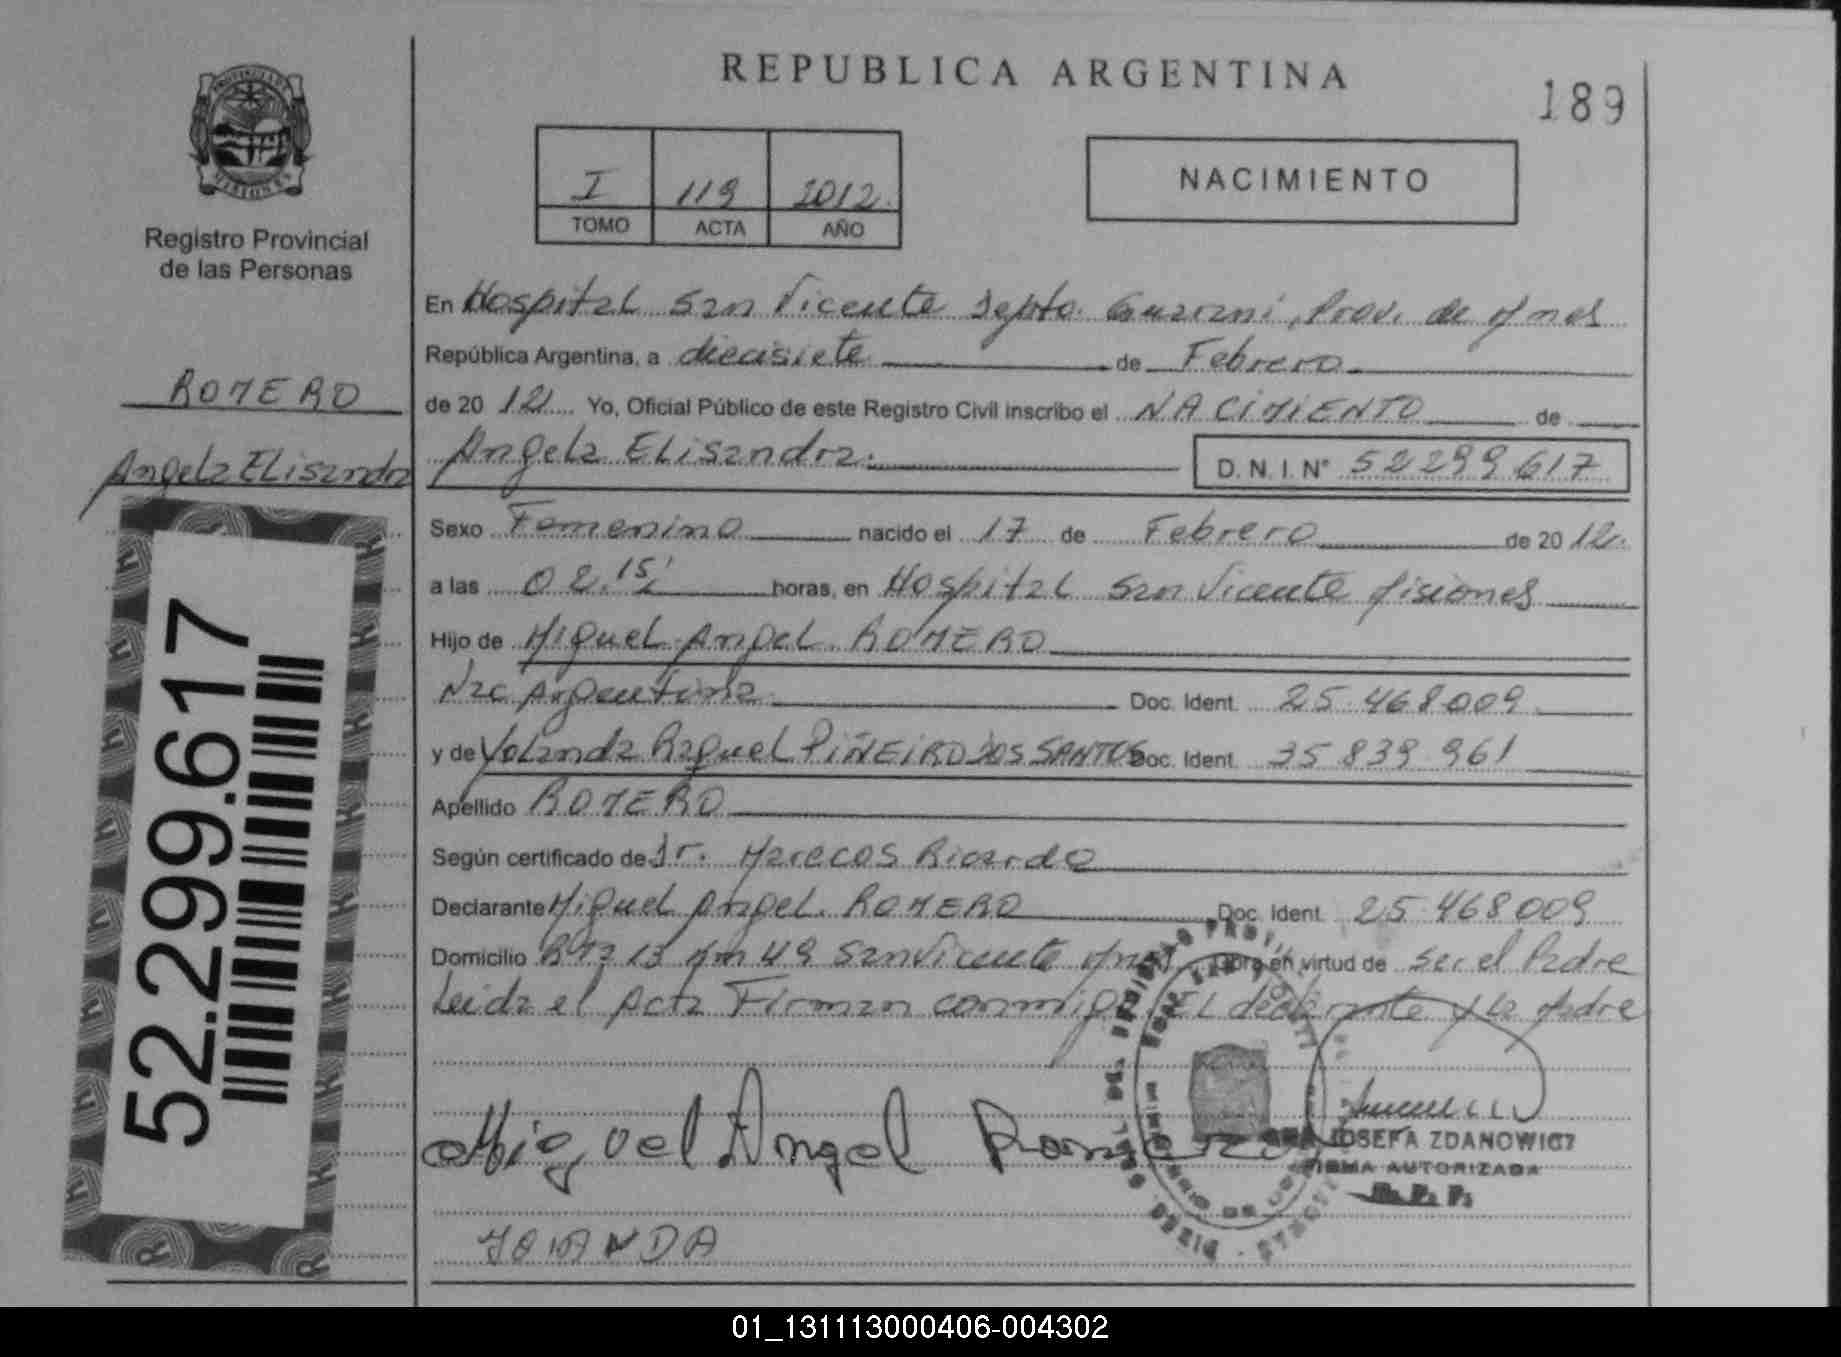 REPUBLICA ARGENTINA
189
PROVINCIA DE
MISIONES
Registro Provincial
de las Personas
I 119 2012.
TOMO ACTA AÑO
NACIMIENTO
ROMERO
Angela Elisandra
52.299.617
En Hospital San Vicente Depto. Guarani, Prov. de Mnes
República Argentina, a diecisiete de Febrero
de 20 12 Yo, Oficial Público de este Registro Civil inscribo el NACIMIENTO de
Angela Elisandra. D. N. I. N° 52299617
Sexo Femenino nacido el 17 de Febrero de 20 12.
a las 02.15' horas, en Hospital San Vicente Misiones
Hijo de Miguel Angel ROMERO
Nac Argentina Doc. Ident. 25.468.009
y de Yolanda Raquel PIÑEIRO DOS SANTOS Doc. Ident. 35.839.961
Apellido ROMERO
Según certificado de Dr. Marecos Ricardo
Declarante Miguel Angel ROMERO Doc. Ident. 25.468.009
Domicilio San Vicente Mnes Obra en virtud de ser el Padre
Leida el Acta Firman conmigo El declarante y la Madre
Miguel Angel Romero
JOSEFA ZDANOWICZ
FIRMA AUTORIZADA
R. P. P.
YOLANDA
01_131113000406-004302